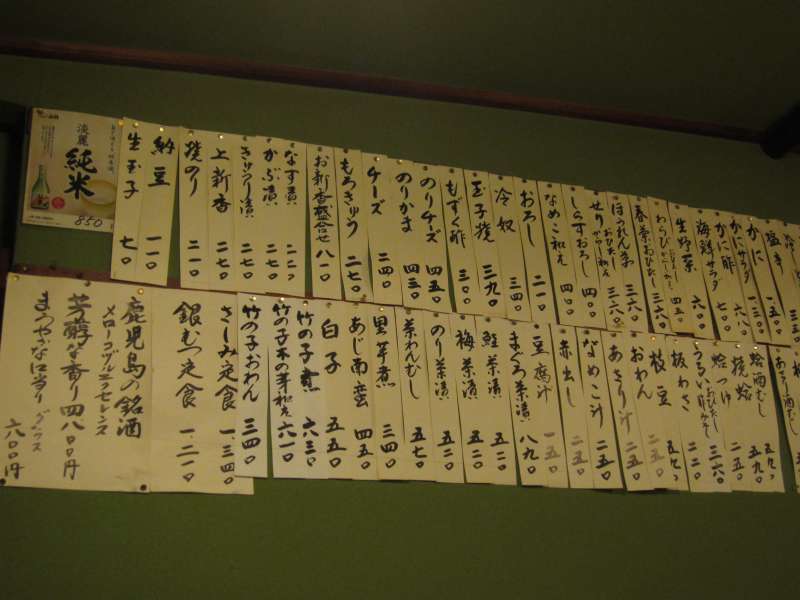 淡麗
純米
850
生玉子 七〇
納豆 一一〇
焼のり 二一〇
上新香 二一〇
きゅうり漬 二七〇
かぶ漬 二七〇
なす漬 二二〇
お新香盛合せ 八一〇
もろきゅう 二七〇
チーズ 二四〇
のりかま 四三〇
のりチーズ 四五〇
もずく酢 三一〇
玉子焼 三九〇
冷奴 三四〇
おろし 二一〇
なめこ和え
しらすおろし 四一〇
せり
ほうれん草 三六〇
春菊おひたし 三六〇
わらび
生野菜 四五〇
海鮮サラダ 六八〇
かに酢 七〇〇
かにサラダ
かに 一三〇〇
塩辛
鹿児島の銘酒
メローコヅルエクセレンス
芳醇な香り 四八〇〇円
まろやかな口当り グラス
六〇〇円
銀むつ定食 一、二一〇
さしみ定食 一、三四〇
竹の子おわん 三四〇
竹の子木の芽和え 六一〇
竹の子煮 六三〇
白子 五五〇
あじ南蛮 四五〇
里芋煮 三四〇
茶わんむし 五七〇
のり茶漬 五二〇
梅茶漬 五二〇
鮭茶漬 五二〇
まぐろ茶漬 八九〇
豆腐汁 一五〇
赤出し 二五〇
なめこ汁 二五〇
あさり汁 二五〇
おわん 二五〇
枝豆
板わさ
うるい
蛤つゆ 二五〇
焼蛤 五九〇
蛤酒むし 五九〇